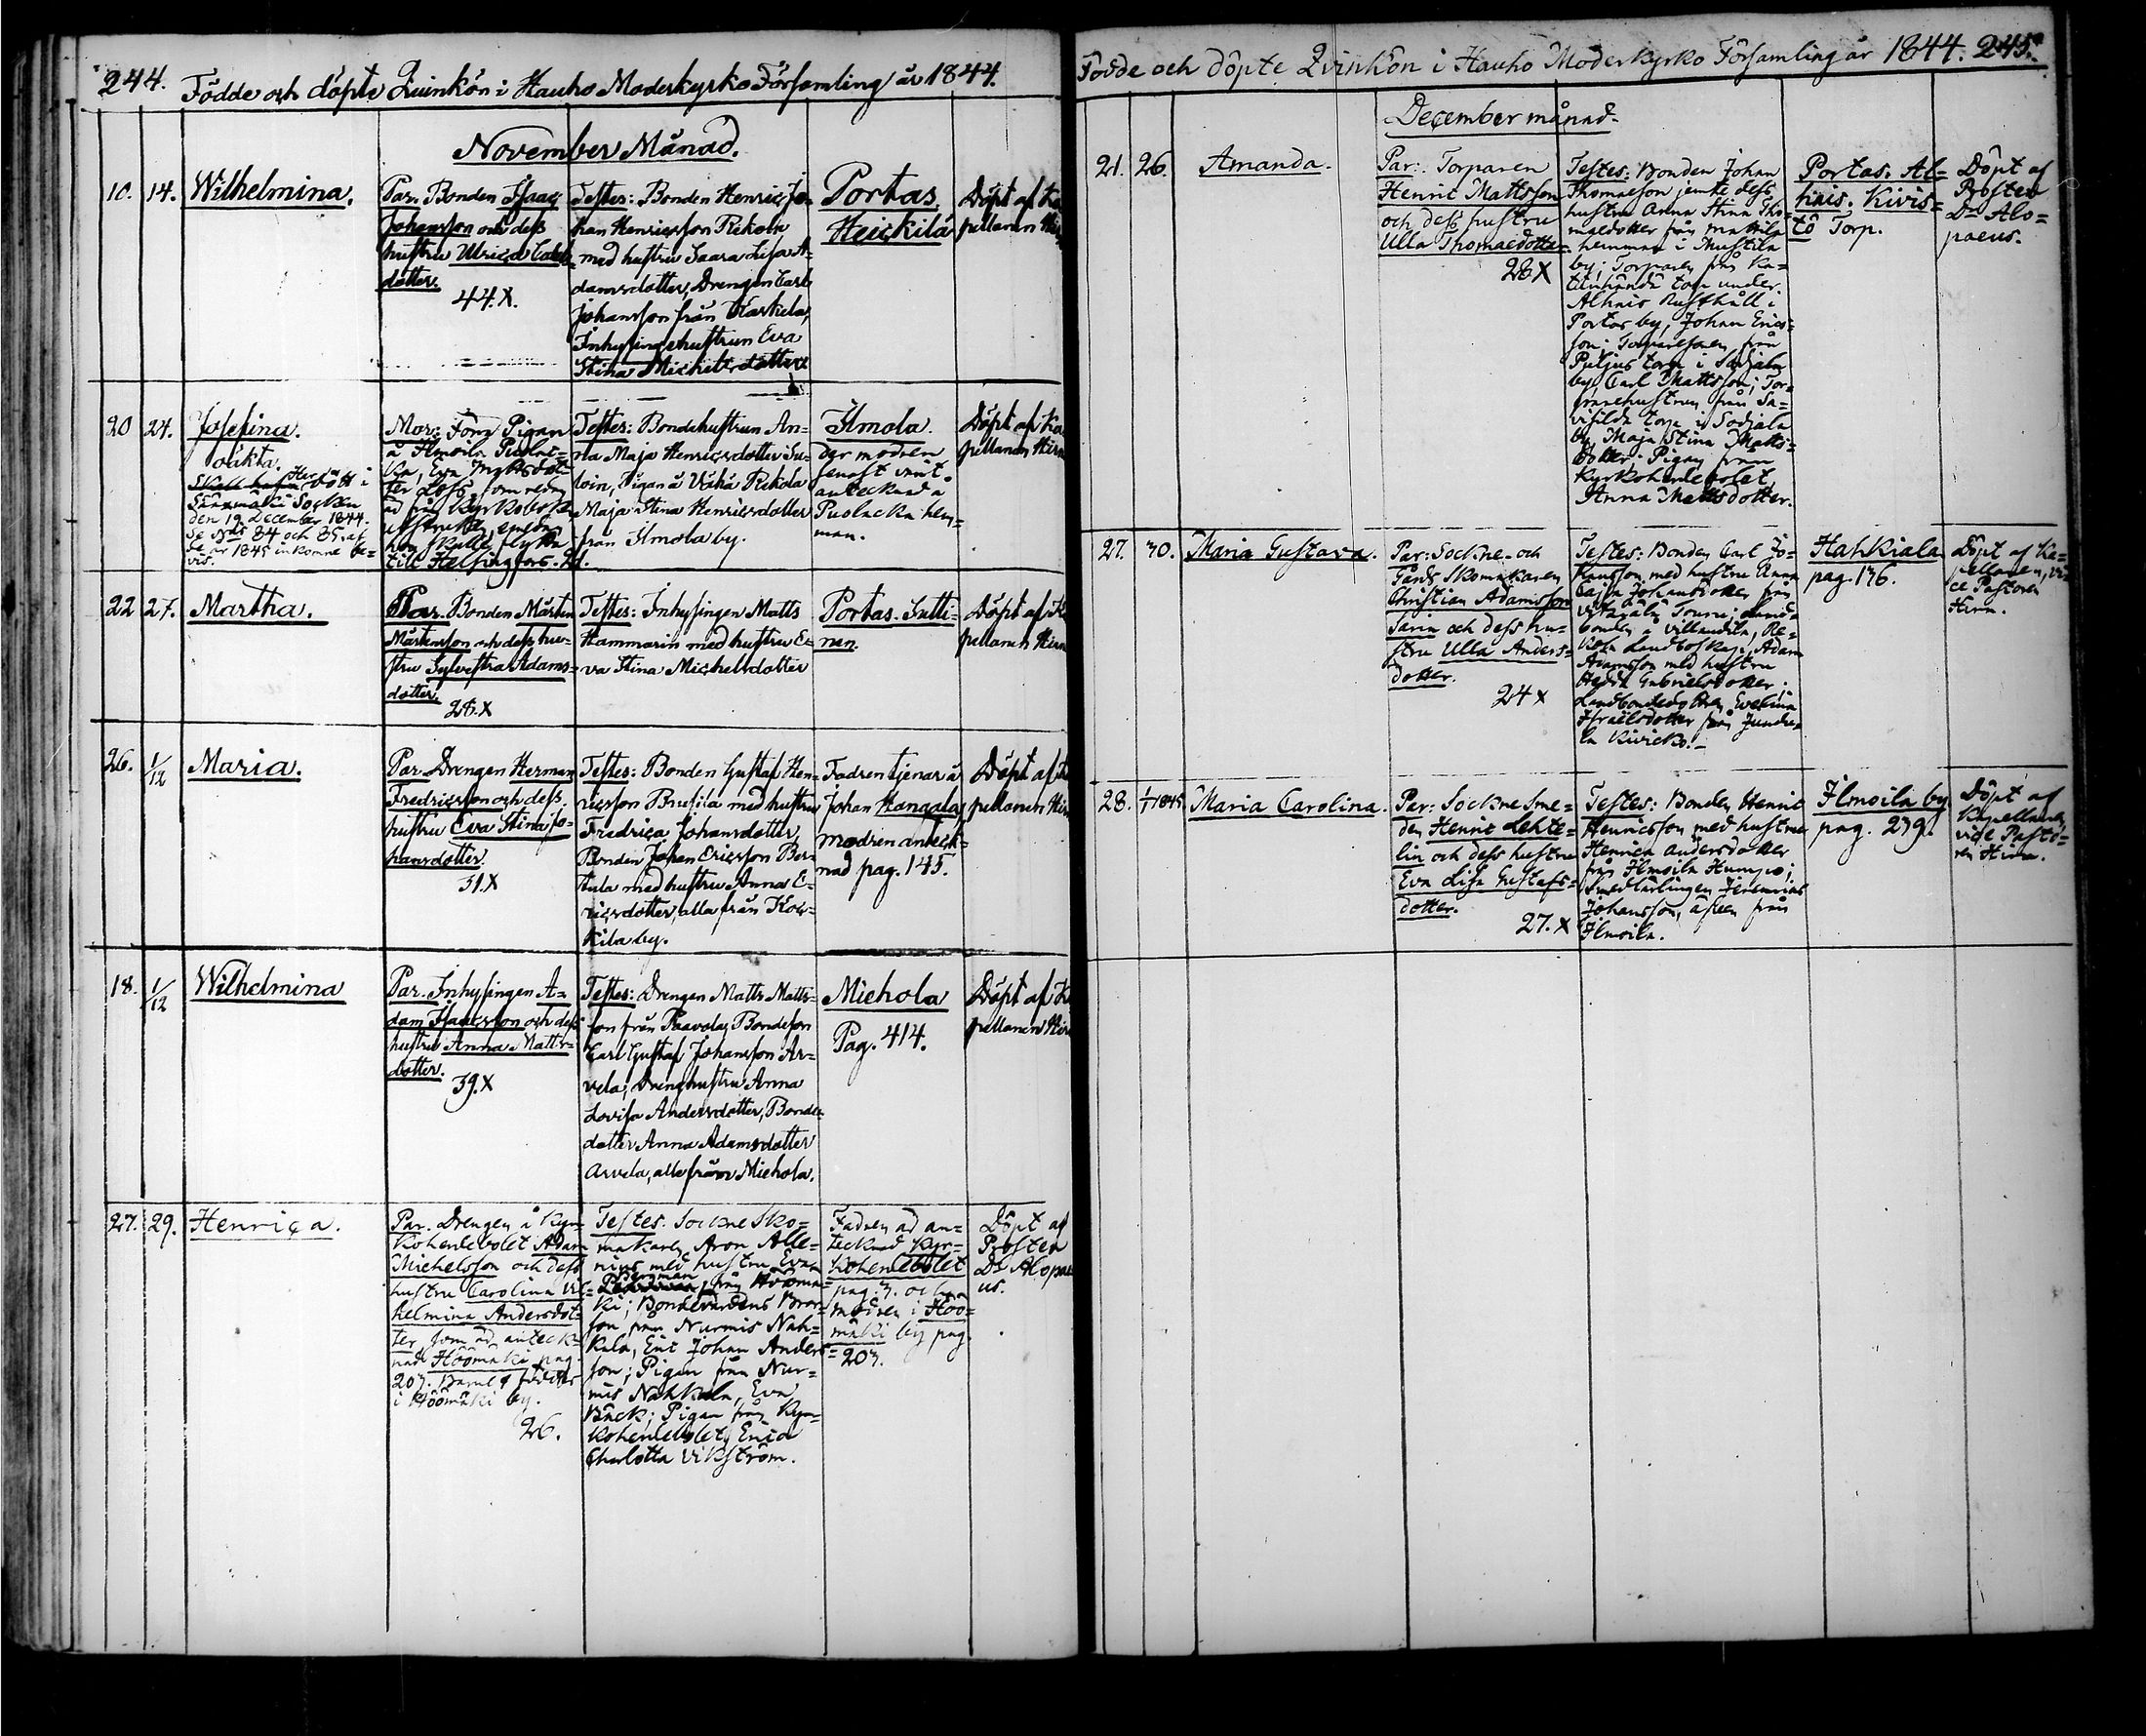 244. Födde och döpte Quinkön i Hauho Moderkyrko Församling år 1844.
November Månad.
10. 14. Wilhelmina.
Par. Bonden Isaac
Johansson och dess
hustru Ulrica Caleb-
dotter.
44. X.
Testes: Bonden Henric Jo-
han Henricsson Rekola
med hustru Saara Lisa A-
damsdotter, Drengen Carl
Johansson från
Inhysingehustrun Eva
Stina Michelsdotter
Portas
Heickilä
Döpt af Ka
pellanen Hirn
20 24. Josefina.
oäkta.
Her död i
Socken
den 19 December 1844.
Se N:ris 84 och 85. af
de år 1845 inkomne be-
vis.
Mor: Förra Pigan
å Ilmoila Puolac-
ka, Eva
ter
till Helsingfors. 21.
Testes: Bondehustrun An-
na Maja Henricsdotter Su-
loin, Pigan å Vähä Rekola
Maja Stina Henricsdotter
från Ilmola by.
Ilmola.
der modren
senast varit
antecknad å
Puolacka hem-
man.
Döpt af Ka
pellanen Hirn
22 27. Martha.
Par. Bonden Mårten
Mårtensson och dess hu-
stru Sylvestra Adams-
dotter.
28. X
Testes: Inhysingen Matts
Hammarin med hustru E-
va Stina Michelsdotter
Portas. Sutti-
nen.
Döpt af K
pellanen Hirn
26. 1/12 Maria.
Par. Drengen Herman
Fredricsson och dess
hustru Eva Stina Jo-
hansdotter.
31. X
Testes: Bonden Gustaf Hen-
ricsson Brusila med hustru
Fredrica Johansdotter,
Bonden Johan Ericsson Ber-
tula med hustru Anna E-
ricsdotter, alla från Kok-
kila by.
Fadren tjenar å
Johan Hangala,
modren anteck-
nad pag. 145.
Döpt af K
pellanen Hirn
18. 1/12 Wilhelmina
Par. Inhysingen A-
dam Isaacsson och dess
hustru Anna Matts-
dotter.
39. X
Testes: Drengen Matts Matts-
son från Paavola, Bondeson
Carl Gustaf Johansson Ar-
vela, Drenghustru Anna
Lovisa Andersdotter, Bonde-
dotter Anna Adamsdotter
Arvela, alla från Miehola.
Miehola
Pag. 414.
Döpt af K
pellanen Hirn
27. 29. Henrica.
Par. Drengen å Kyr-
koherdebolet Adam
Michelsson och dess
hustru Carolina Vil-
helmina Andersdot-
ter, som är anteck-
nad Höömäki pag.
203. Barnet föddes
i Höömäki by.
26.
Testes. Sockne Sko-
makaren Aron Alle-
nius med hustru Eva
Bergman, från Höömä-
ki; Bondevärdens Bror-
son från Nurmis Nah-
kala, Eric Johan Anders-
son; Pigan från Nur-
mis Nahkala, Eva
Bäck; Pigan från Kyr-
koherdebolet, Erica
Charlotta Vikström.
Fadren är an-
tecknad Kyr-
koherdebolet
pag. 3. och
modren i Höö-
mäki by pag.
203.
Döpt af
Prosten
Dr Alopae
us.
Födde och döpte Qvinkön i Hauho Moderkyrko Församling år 1844. 245.
December månad.
21. 26. Amanda.
Par: Torparen
Henric Mattsson
och dess hustru
Ulla Thomaedotter
28 X
Testes: Bonden Johan
Thomasson jemte dess
hustru Anna Stina Tho-
maedotter från Mattila
hemman i Mustila
by; Torparen från
torp under
Alhais Rusthåll i
Portas by, Johan Erics-
son; Torparesonen från
Puljus torp i Sodjala
by, Carl Mattsson; Tor-
parehustrun från
torp i Sodjala
by, Maja Stina Matts-
dotter; Pigan från
Kyrkoherdebolet,
Anna Mattsdotter.
Portas. Al-
hais. Kivis-
tö Torp.
Döpt af
Prosten
Dr Alo-
paeus.
27. 30. Maria Gustava.
Par: Sockne- och
Gårds Skomakaren
Christian Adamsson
Sarin och dess hu-
stru Ulla Anders-
dotter.
24 X
Testes: Bonden Carl Jo-
hansson med hustru Anna
Cajsa Johansdotter från
Adam
Adamsson med hustru
Hedda Gabrielsdotter;
Landbondedottren Evelina
Israelsdotter från
Hahkiala
pag. 176.
Döpt af Ka-
pellanen, vi-
ce Pastoren
Hirn.
28. 1/1 1845. Maria Carolina.
Par: Sockne Sme-
den Henric Lehte-
lin och dess hustru
Eva Lisa Gustafs-
dotter.
27. X
Testes: Bonden Henric
Henricsson med hustru
Henrica Andersdotter
från Ilmoila Humpio;
Smedlärlingen Jeremias
Johansson, äfven från
Ilmoila.
Ilmoila by
pag. 239.
Döpt af
Kapellanen,
vice Pasto-
ren Hirn.